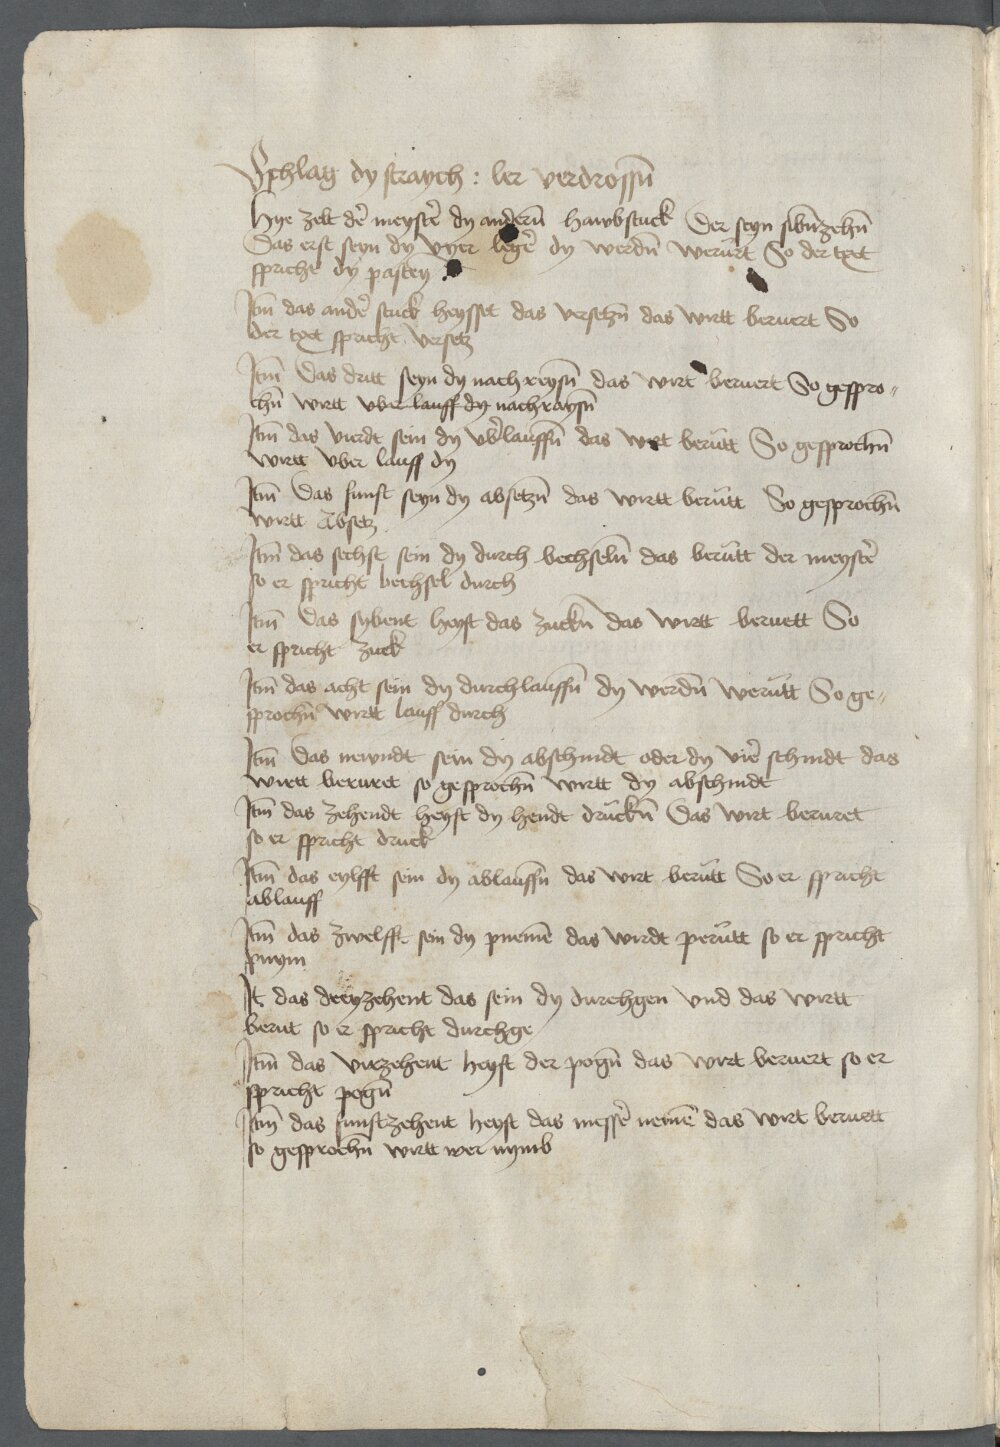 Schlag dy straych : ler verdrossn̄
Hye zelt dē meystē dy anderū hawbstuck Der seyn sibn̄zehn̄
Das erst seyn dy vyer legē dy werdn̄ werūrt So der text
spricht dy pastey
Itm̄ das andē stuck heysset das versetzn̄ das wirtt beruert So
der text spricht versetz
Itm̄ Das dritt seyn dy nachreysn̄ das wirt beruert So gespro-
chn̄ wirtt vber lauff dy nachraysn̄
Itm̄ das vierdt sein dy vb̄lauffn̄ das wirt berūtt So gesprochn̄
wirtt vber lauff dy
Itm̄ Das funft seyn dy absetzn̄ das wirtt berūtt So gesprochn̄
wirtt Absetz
Itm̄ das sechst sein dy durch bechseln̄ das berūtt der meystē
so er spricht bechsel durch
Itm̄ Das sybent heyst das zuckn̄ das wirtt beruett So
er spricht zuck
Itm̄ das acht sein dy durchlauffn̄ dy werdn̄ werūtt So ge-
sprochn̄ wirtt lauff durch
Itm̄ Das newndt sein dy abschnidt oder dy vie͂ schnidt das
wirtt beruret so gesprochn̄ wirtt dy abschnidt
Itm̄ das zehendt heyst dy hendt druckn̄ Das wirt beruret
so er spricht druck
Itm̄ das eylfft sein dy ablauffn̄ das wirt berūtt So er spricht
ablauff
Itm̄ das zwelfft sein dy pnemē das wirdt perūtt so er spricht
pnym
It das dreyzehent das sein dy durchgen vnd das wirtt
berut so er spricht durchge
Itm̄ das virzehent heyst der pogn̄ das wirt beruert so er
spricht pogn̄
Itm̄ das funftzehent heyst das messē nemē das wirt beruett
so gesprochn̄ wirtt wer nymb